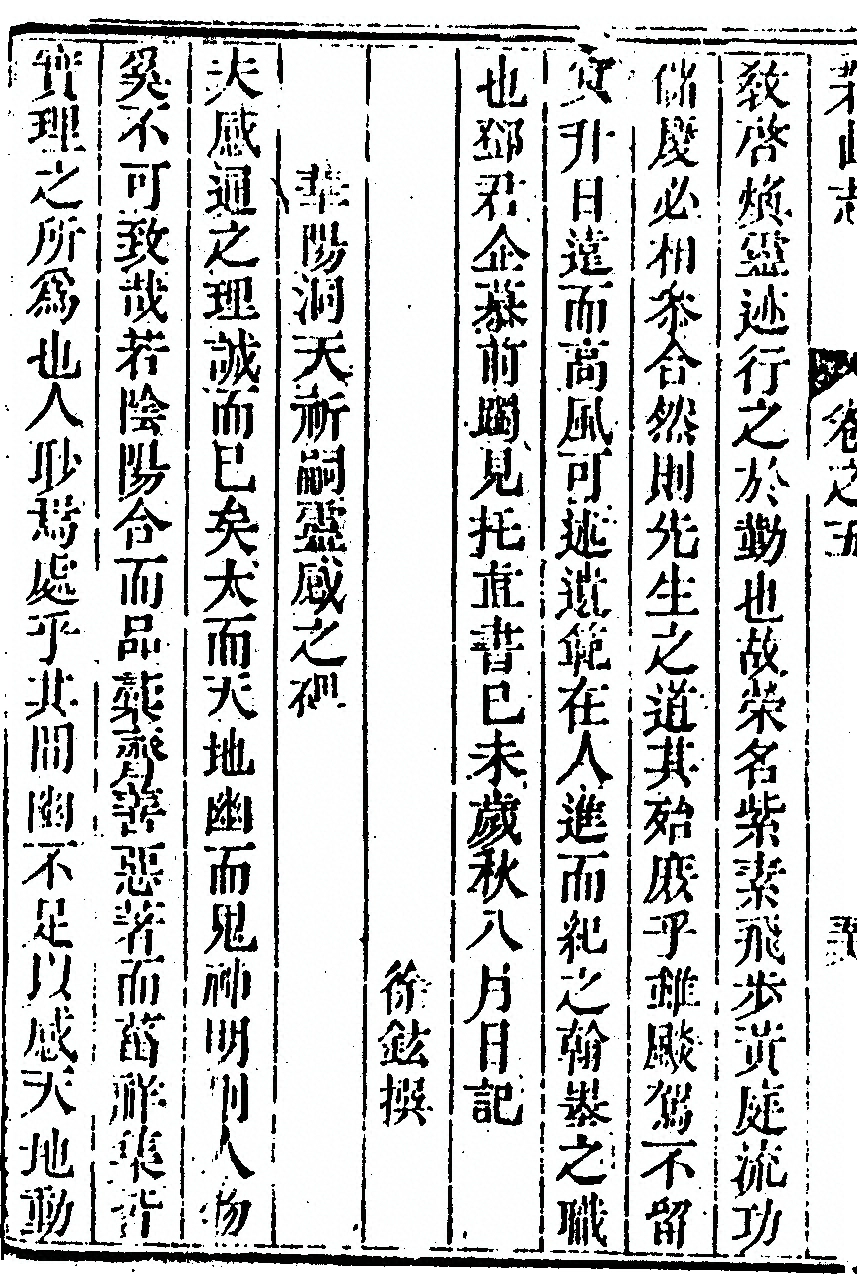 茅山志 卷之五
敎啓煥靈迹行之於勤也故榮名紫素飛步黃庭流功
儲慶必相叅合然則先生之道其殆庶乎雖飈駕不留
賓升日遠而高風可述遺範在人進而紀之翰墨之職
也鄧君企慕前躅見托直書已未歲秋八月日記
徐鉉撰
華陽洞天祈嗣靈感之碑
夫感通之理誠而已矣大而天地幽而鬼神明則人物
奚不可致哉若陰陽合而品彙齊善惡著而菑祥集皆
實理之所爲也人眇焉處乎其間幽不足以感天地動